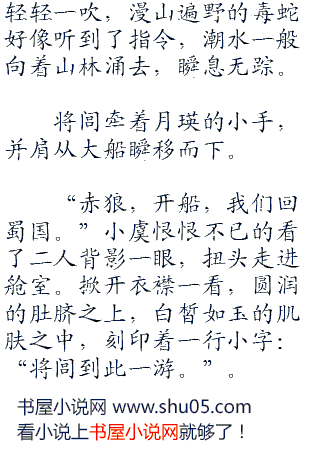 轻轻一吹，漫山遍野的毒蛇
好像听到了指令，潮水一般
向着山林涌去，瞬息无踪。
将闾牵着月瑛的小手，
并肩从大船瞬移而下。
“赤狼，开船，我们回
蜀国。”小虞恨恨不已的看
了二人背影一眼，扭头走进
舱室。掀开衣襟一看，圆润
的肚脐之上，白皙如玉的肌
肤之中，刻印着一行小字：
“将闾到此一游。”。
书屋小说网 www.shu05.com
看小说上书屋小说网就够了！